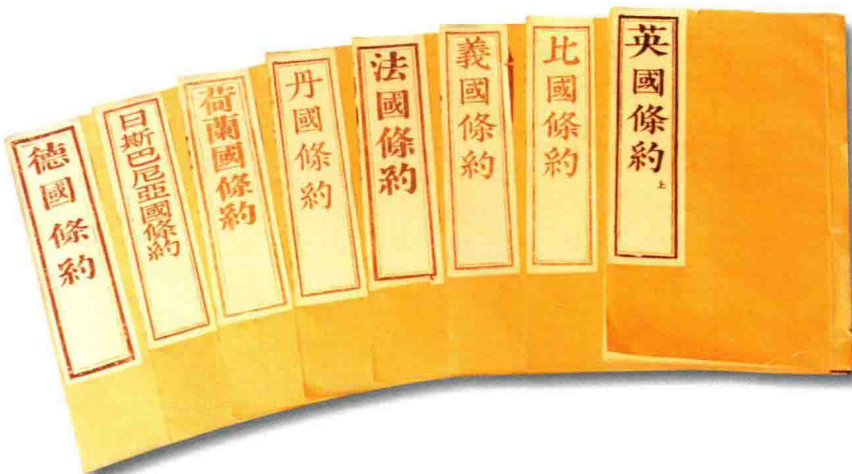 德國條約
日斯巴尼亞國條約
荷蘭國條約
丹國條約
法國條約
義國條約
比國條約
英國條約 上